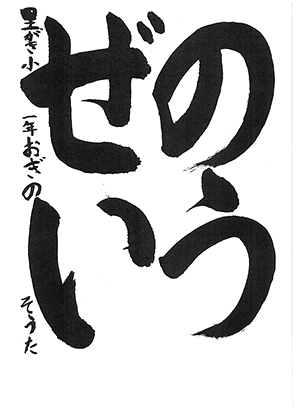 のう
ぜい
一年おぎの そうた